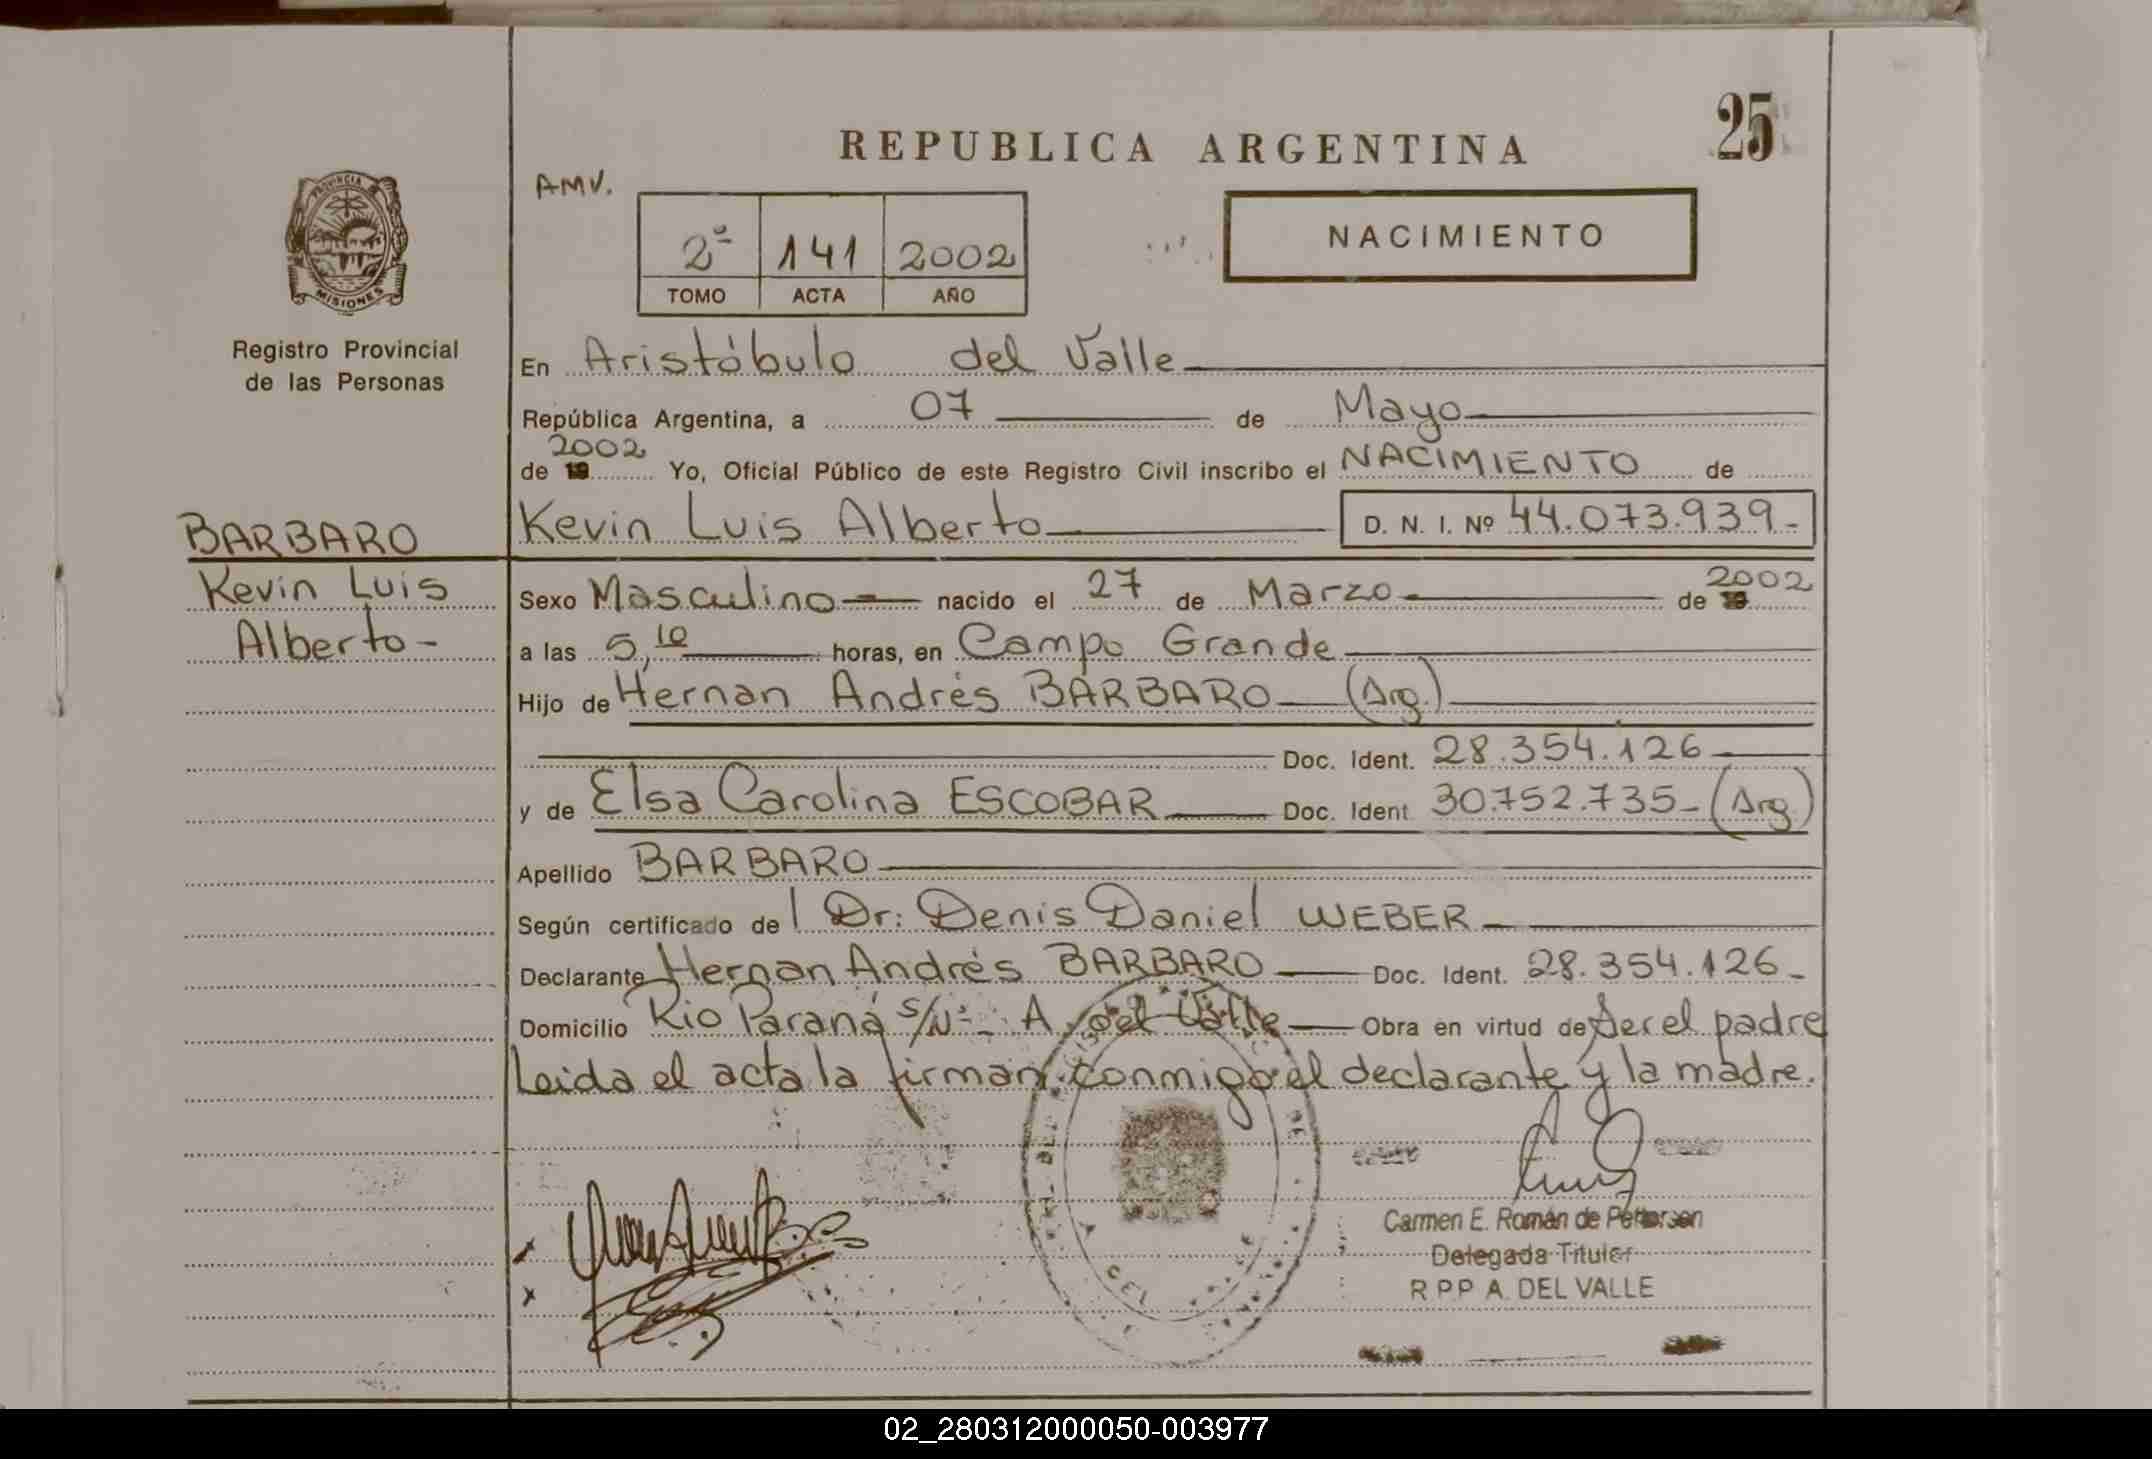 REPUBLICA ARGENTINA
25
AMV.
PROVINCIA
MISIONES
2ª 141 2002
TOMO ACTA AÑO
NACIMIENTO
Registro Provincial
de las Personas
En Aristóbulo del Valle
República Argentina, a 07 de Mayo
de 19 2002 Yo, Oficial Público de este Registro Civil inscribo el NACIMIENTO de
BARBARO
Kevin Luis
Alberto-
Kevin Luis Alberto D. N. I. Nº 44.073.939-
Sexo Masculino nacido el 27 de Marzo de 2002
a las 5,10 horas, en Campo Grande
Hijo de Hernan Andrés BARBARO (Arg.)
Doc. Ident. 28.354.126
y de Elsa Carolina ESCOBAR Doc. Ident. 30.752.735- (Arg.)
Apellido BARBARO
Según certificado de Dr: Denis Daniel WEBER
Declarante Hernan Andrés BARBARO Doc. Ident. 28.354.126-
Domicilio Rio Paraná s/Nº- A. del Valle Obra en virtud de Ser el padre
Leida el acta la firman conmigo el declarante y la madre.
Carmen E. Román de Pettersen
Delegada Titular
R P P A. DEL VALLE
02_280312000050-003977